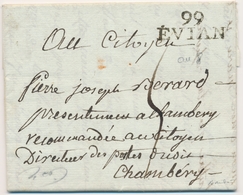 99
ÉVIAN
Au Citoyen
pierre joseph Berard
presentement a Chambery
recommandée au Citoyen
Directeur des postes dudit
Chambery